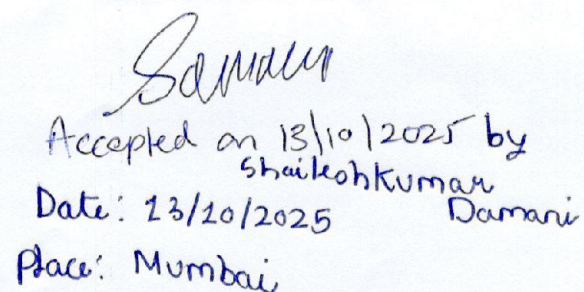 Accepted on 13/10/2025 by
Shaileshkumar
Damani
Date: 13/10/2025
Place: Mumbai